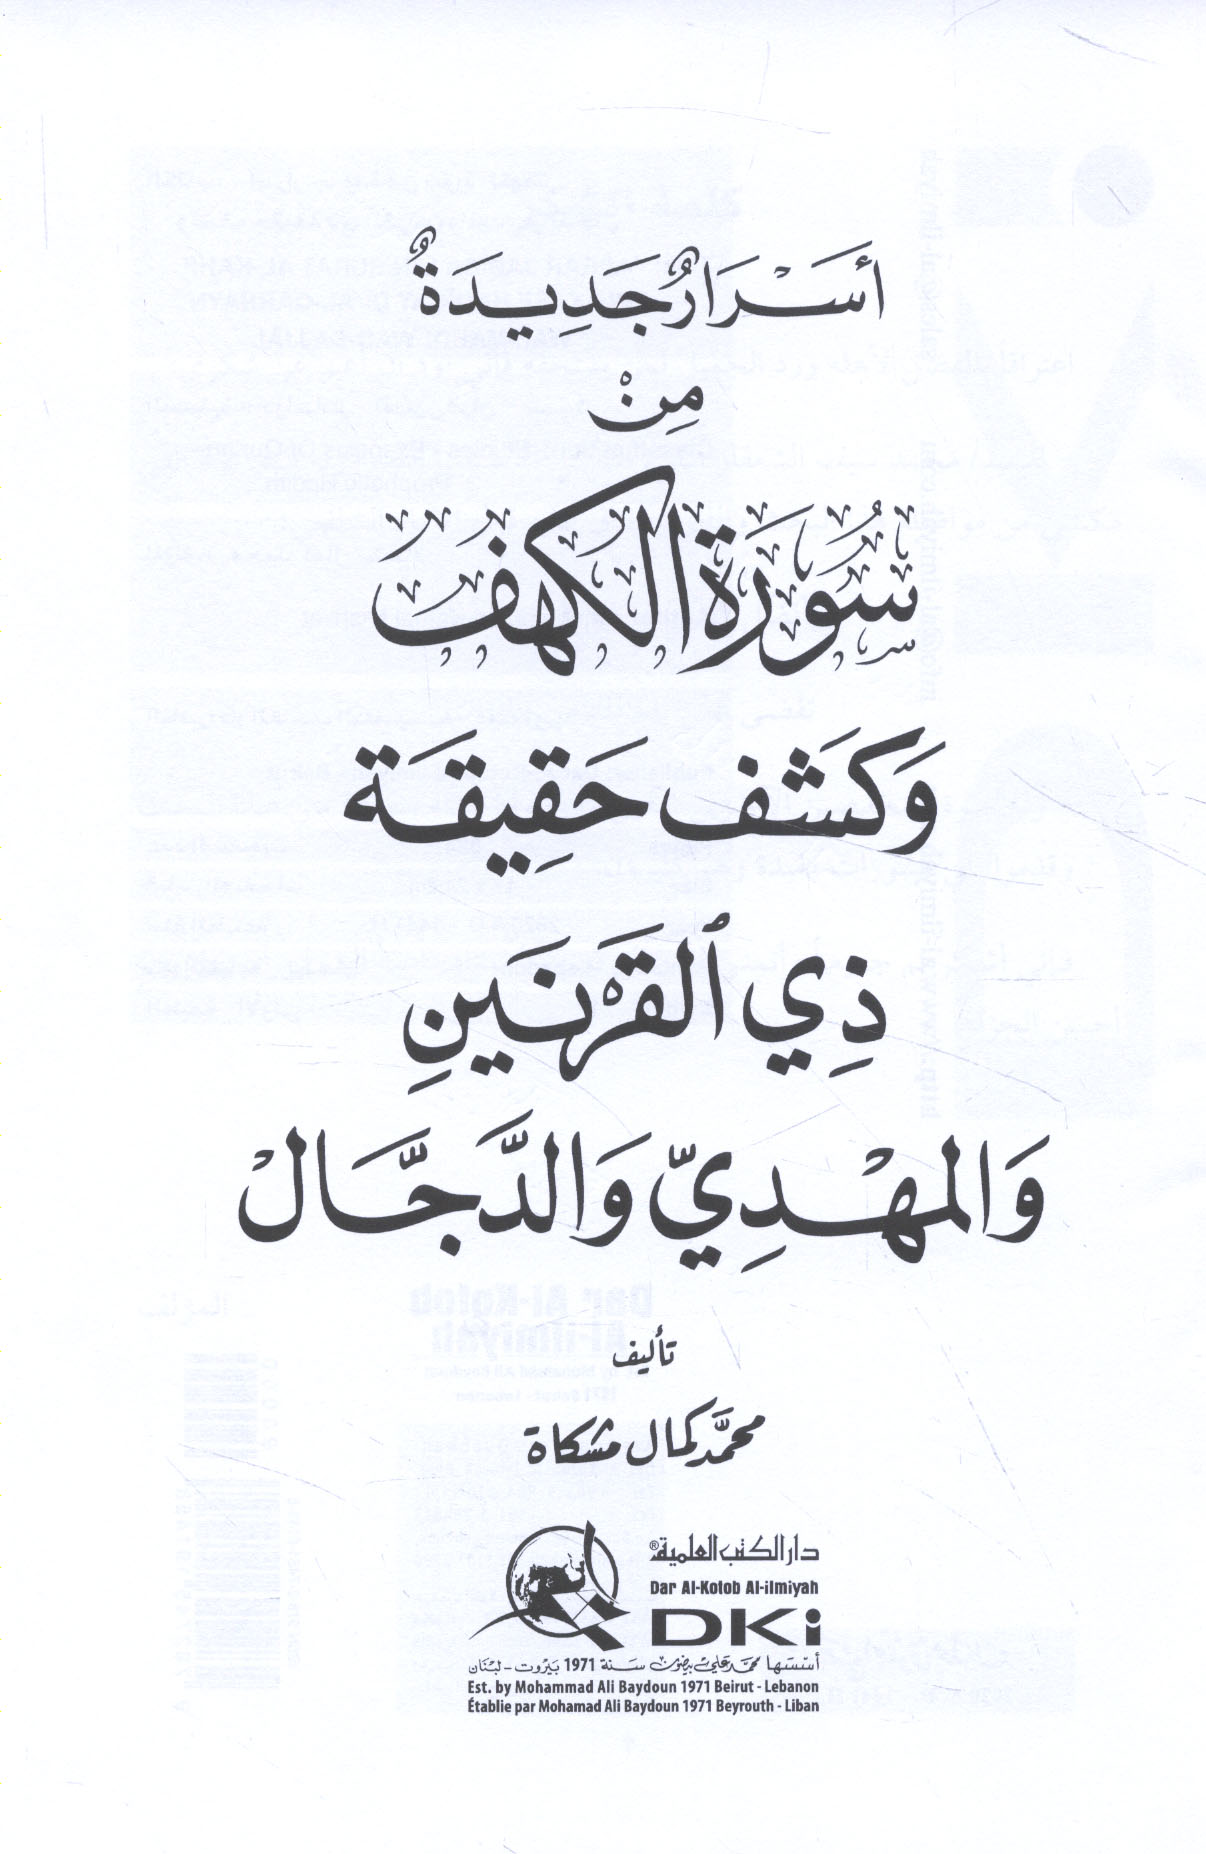 أَسْرَارٌ جَدِيدَةٌ
مِنْ
سُورَةِ الْكَهْفِ
وَكَشْف حَقِيقَة
ذِي ٱلقَرْنَيْنِ
وَالمَهْدِيّ وَالدَّجَّالْ
تأليف
محمّد كمال مشكاة
دار الكتب العلمية®
Dar Al-Kotob Al-ilmiyah
DKi
أسّسها محمد علي بيضون سنة 1971 بيروت - لبنان
Est. by Mohammad Ali Baydoun 1971 Beirut - Lebanon
Établie par Mohamad Ali Baydoun 1971 Beyrouth - Liban